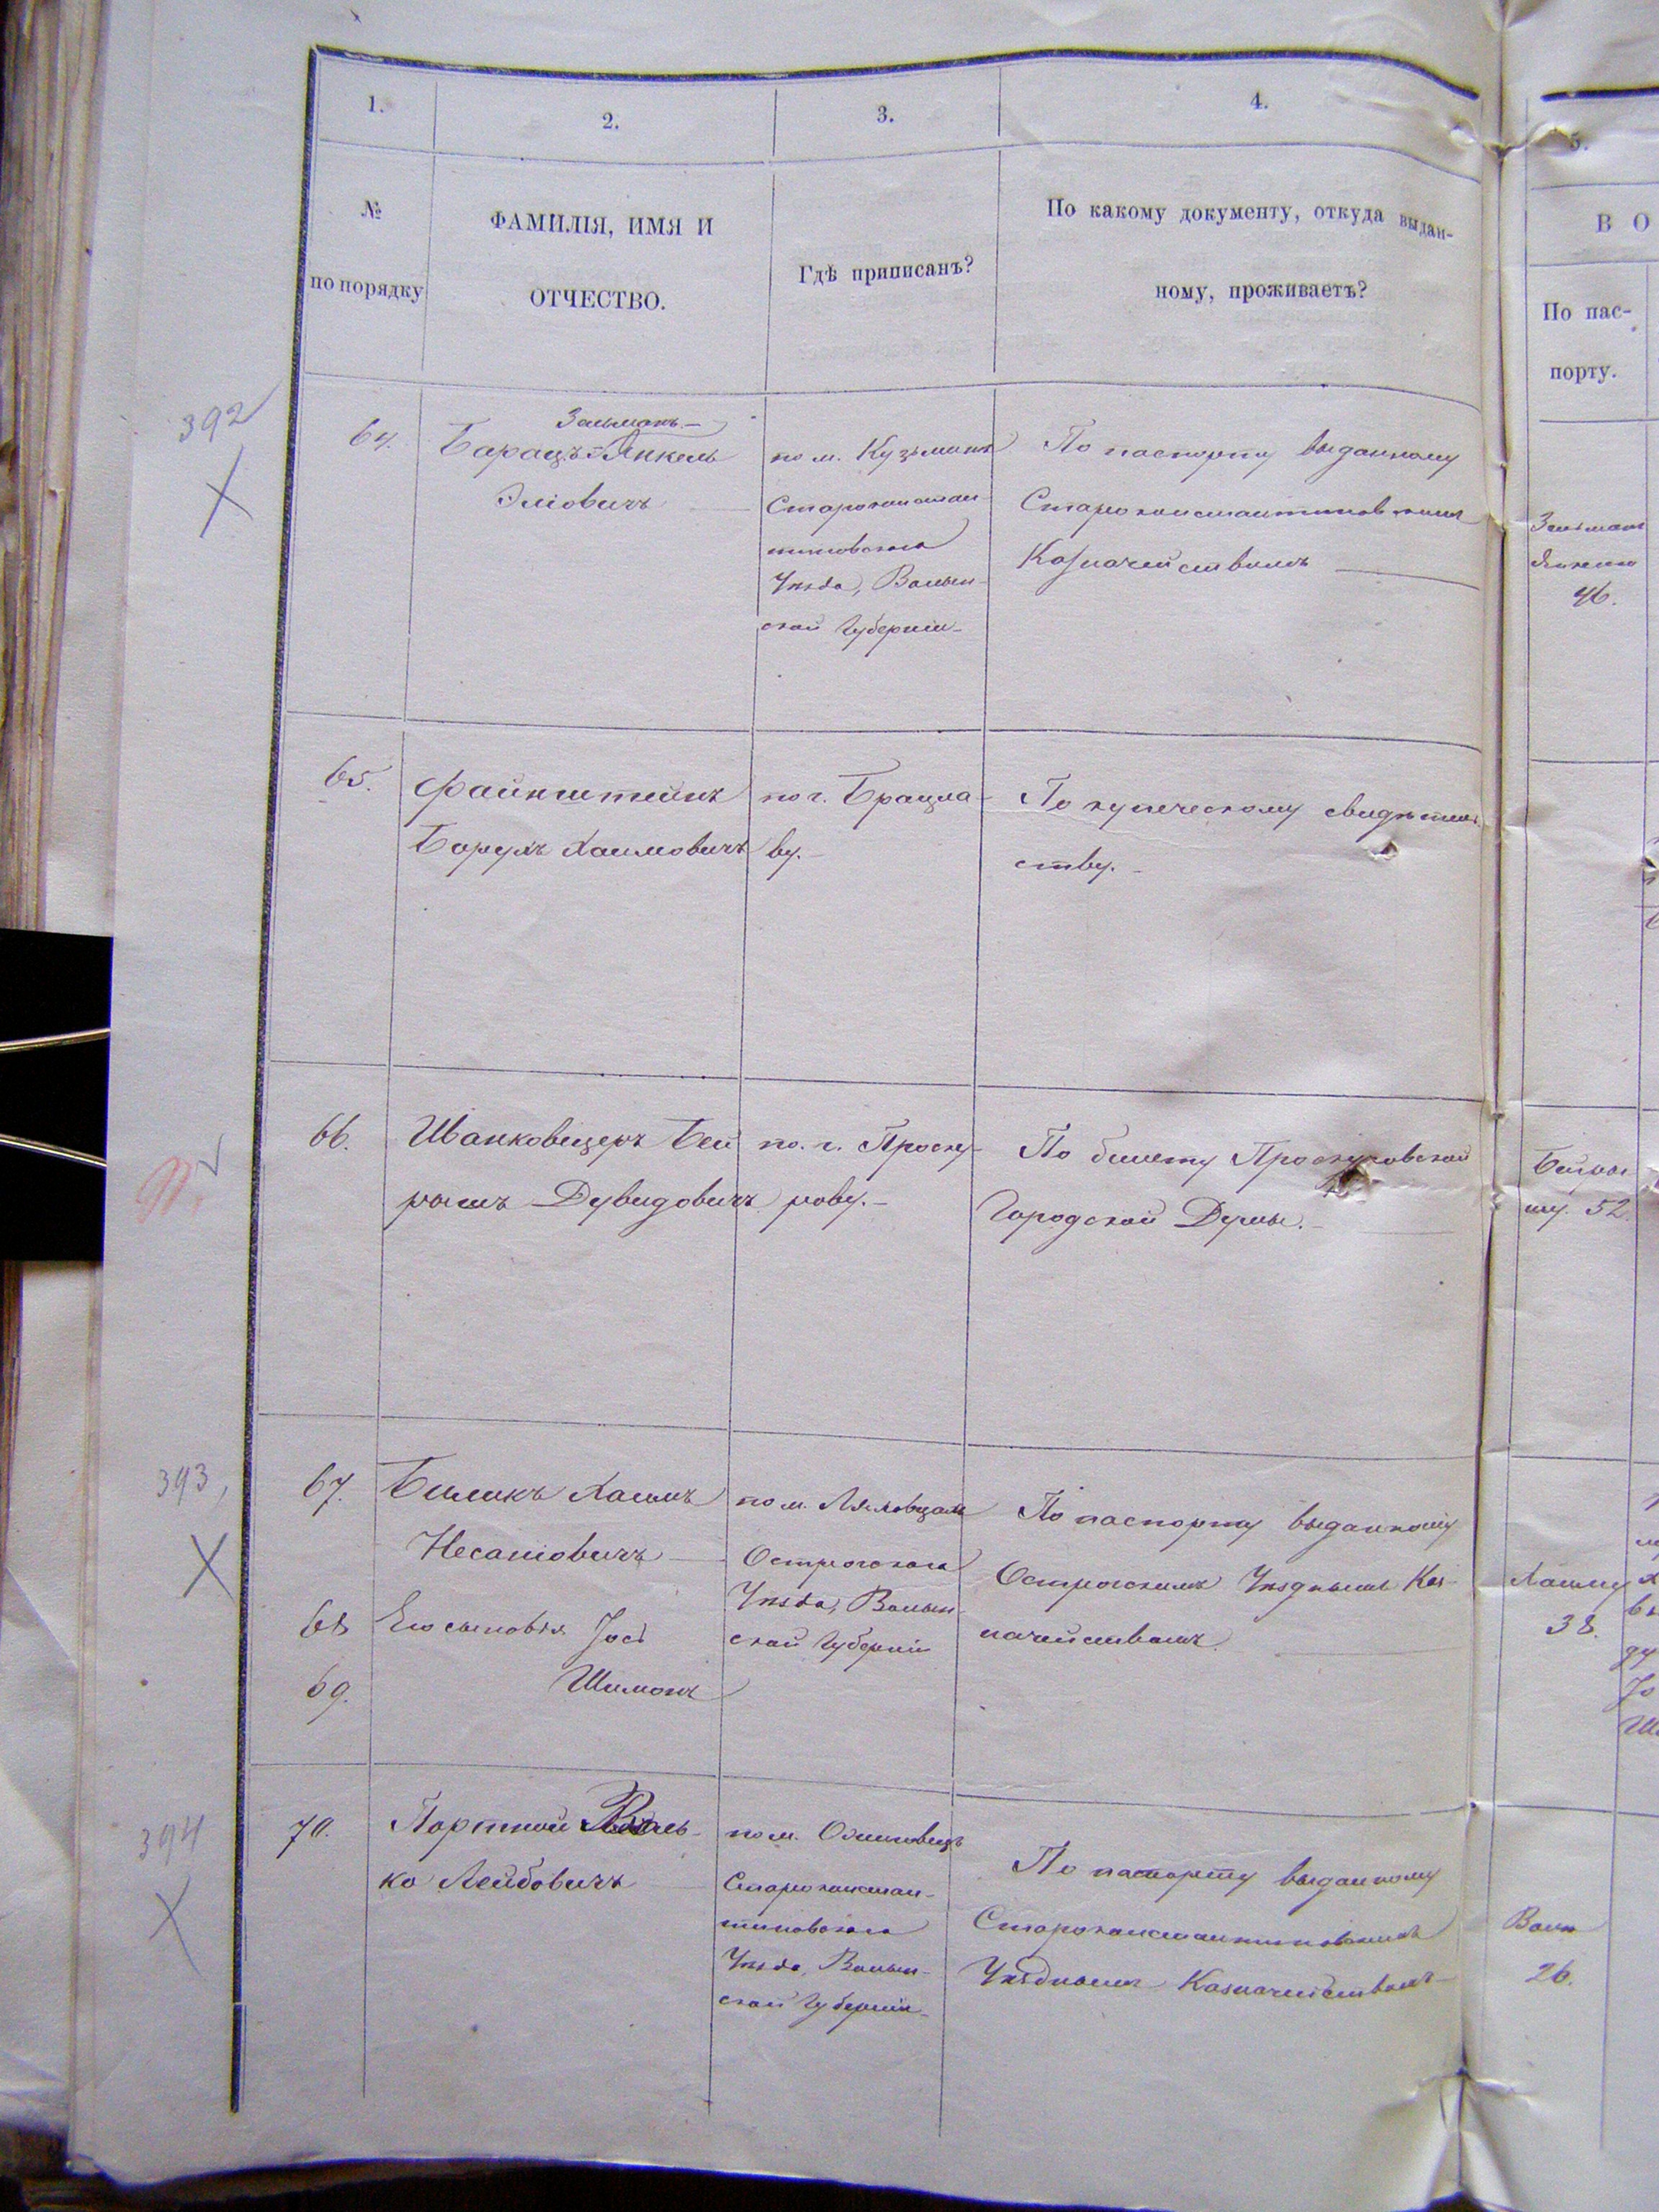 1.
2.
3.
4.
5.
№
по порядку
ФАМИЛІЯ, ИМЯ И
ОТЧЕСТВО.
Гдѣ приписанъ?
По какому документу, откуда выдан-
ному, проживаетъ?
В О
По пас-
порту.
392
64.
Зельманъ-
Барацъ-Янкель
Эліовичъ
по м. Кузьмину
Староконстан-
тиновскаго
Уѣзда, Волын-
ской Губерніи
По паспорту выданному
Староконстантиновскимъ
Казначействомъ
Зельману
Янкелю
46.
65.
Файнштейнъ
Борухъ Хаимовичъ
по г. Брацла-
ву.
По купеческому свидѣтель
ству.
66.
Иванковецеръ Бей
рышъ Дувидовичъ
по. г. Проску-
рову.
По билету Проскуровской
Городской Думы.
Бейры
шу. 52.
393,
67.
Биликъ Хаимъ
Несановичъ
68
Его сыновья Іось
69.
Шимонъ
по м. Ляховцамъ
Острогскаго
Уѣзда, Волын-
ской Губерніи
По паспорту выданному
Острогскимъ Уѣзднымъ Каз-
начействомъ.
Хаиму
38.
394
70.
Портной Воль-
ко Лейбовичъ
по м.
Староконстан-
тиновскаго
Уѣзда, Волын-
ской Губерніи
По паспорту выданному
Староконстантиновскимъ
Уѣзднымъ Казначействомъ
26.